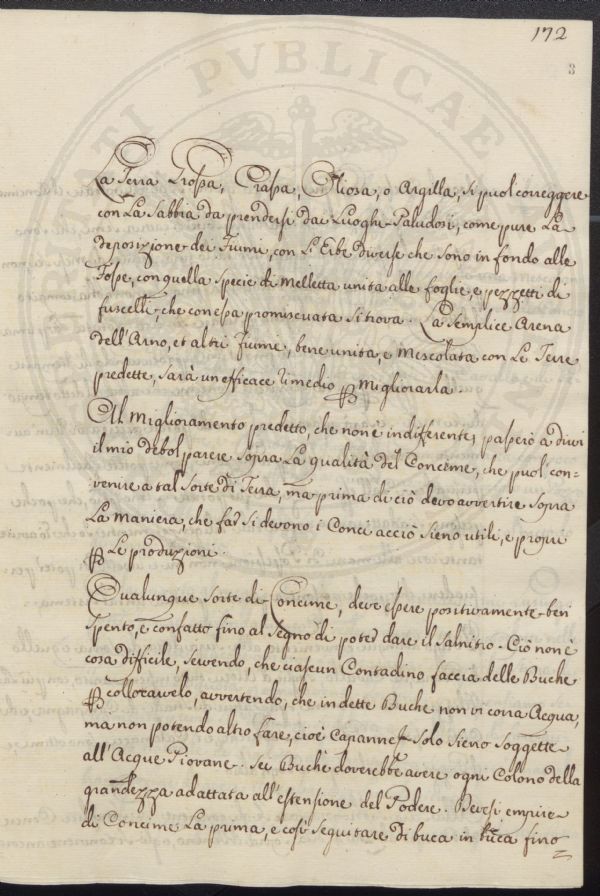 172
8
La Terra Grossa, Crassa, Oliosa, o Argilla, si puol correggere
con La Sabbia da prendersi dai Luoghi Paludosi, come pure La
deposizione dei Fiumi, con L'Erbe diverse che sono in fondo alle
Fosse, con quella specie di Melletta unita alle foglie, e pezzetti di
fuscelli, che con essa promiscuata si trova. La semplice Arena
dell'Arno, et altri Fiumi, bene unita, e Mescolata con Le Terre
predette, sarà un efficace Rimedio ꝑ Migliorarla.
Al Miglioramento predetto, che non è indifferente, passerò a dirvi
il mio debol parere sopra La qualità del Concime, che puol con=
venire a tal sorte di Terra, ma prima di ciò devo avvertire sopra
La maniera, che far si devono i Conci acciò sieno utili, e proprii
ꝑ Le produzione.
Qualunque sorte di Concime, deve essere positivamente ben
spento, e confatto fino al segno di poter dare il Salnitro. Ciò non è
cosa difficile, sewendo, che ciascun Contadino faccia delle Buche
ꝑ collocarvelo, avvertendo, che in dette Buche non vi corra Acqua,
ma non potendo altro fare, cioè Capanne solo sieno soggette
all'Acque Piovane. Sei Buche doverebbe avere ogni Colono della
grandezza adattata all'estensione del Podere. Devesi empire
di Concime La prima, e così seguitare di buca in buca fino
PVBLICAE